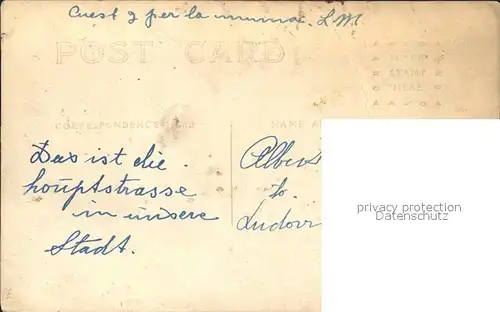 Cuest y per la mumma. L.M.
POST CARD
PLACE
STAMP
HERE
CORRESPONDENCE HERE
NAME A
Das ist die
houptstrasse
in unsere
Stadt.
Albert
to.
Ludovi
privacy protection
Datenschutz